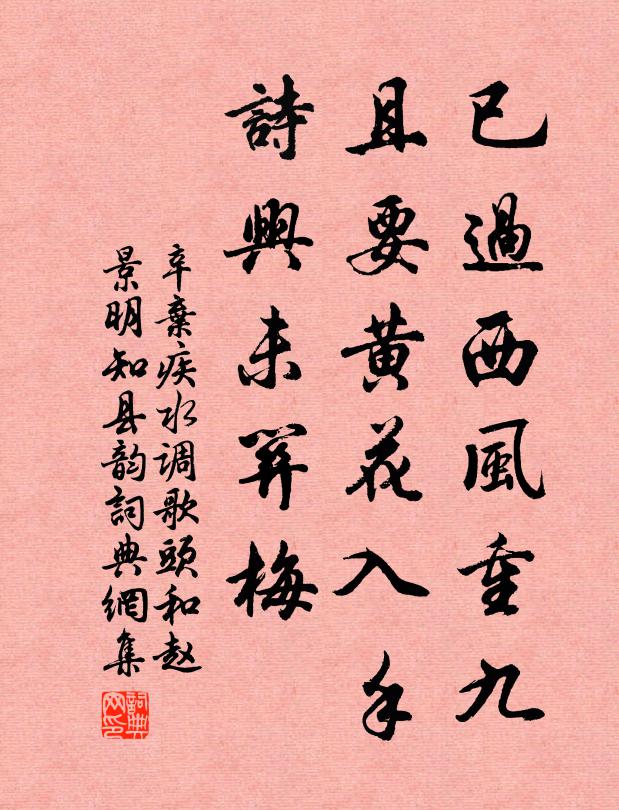 已過西風重九
且要黄花入手
詩興未關梅
辛棄疾水调歌頭和赵
景明知县韵詞典網集
詞典
网印